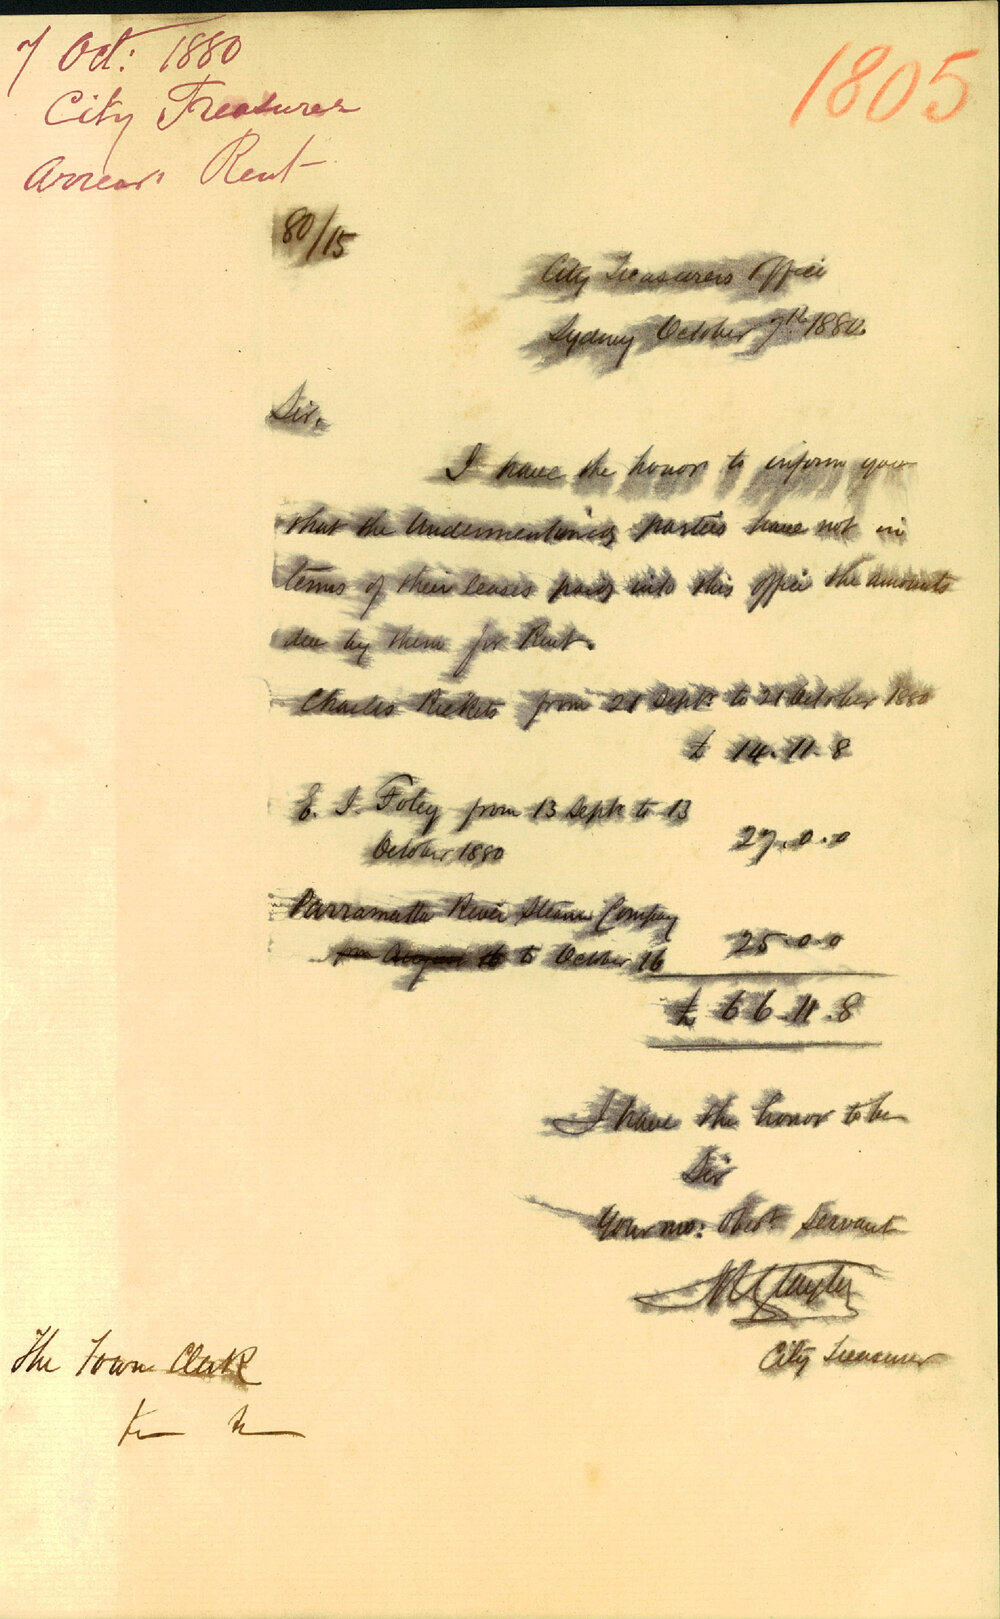 7 Oct: 1880
City Treasurer
Arrears Rent
1805
80/15
City Treasurers Office
Sydney October 7th 1880.
Sir.
I have the honor to inform you
that the Undermentioned parties have not in
terms of their leases paid into this Office the amounts
due by them for Rent.
Charles Rickets from 21 Sept: to 21 October 1880
£ 14.11.8
E. J. Foley from 13 Sept: to 13
October 1880
27.0.0
Parramatta River Steam Company
from August 16 to October 16
25.0.0
£ 66.11.8
I have the honor to be
Sir
Your mo: Obedt Servant
City Treasurer
The Town Clerk